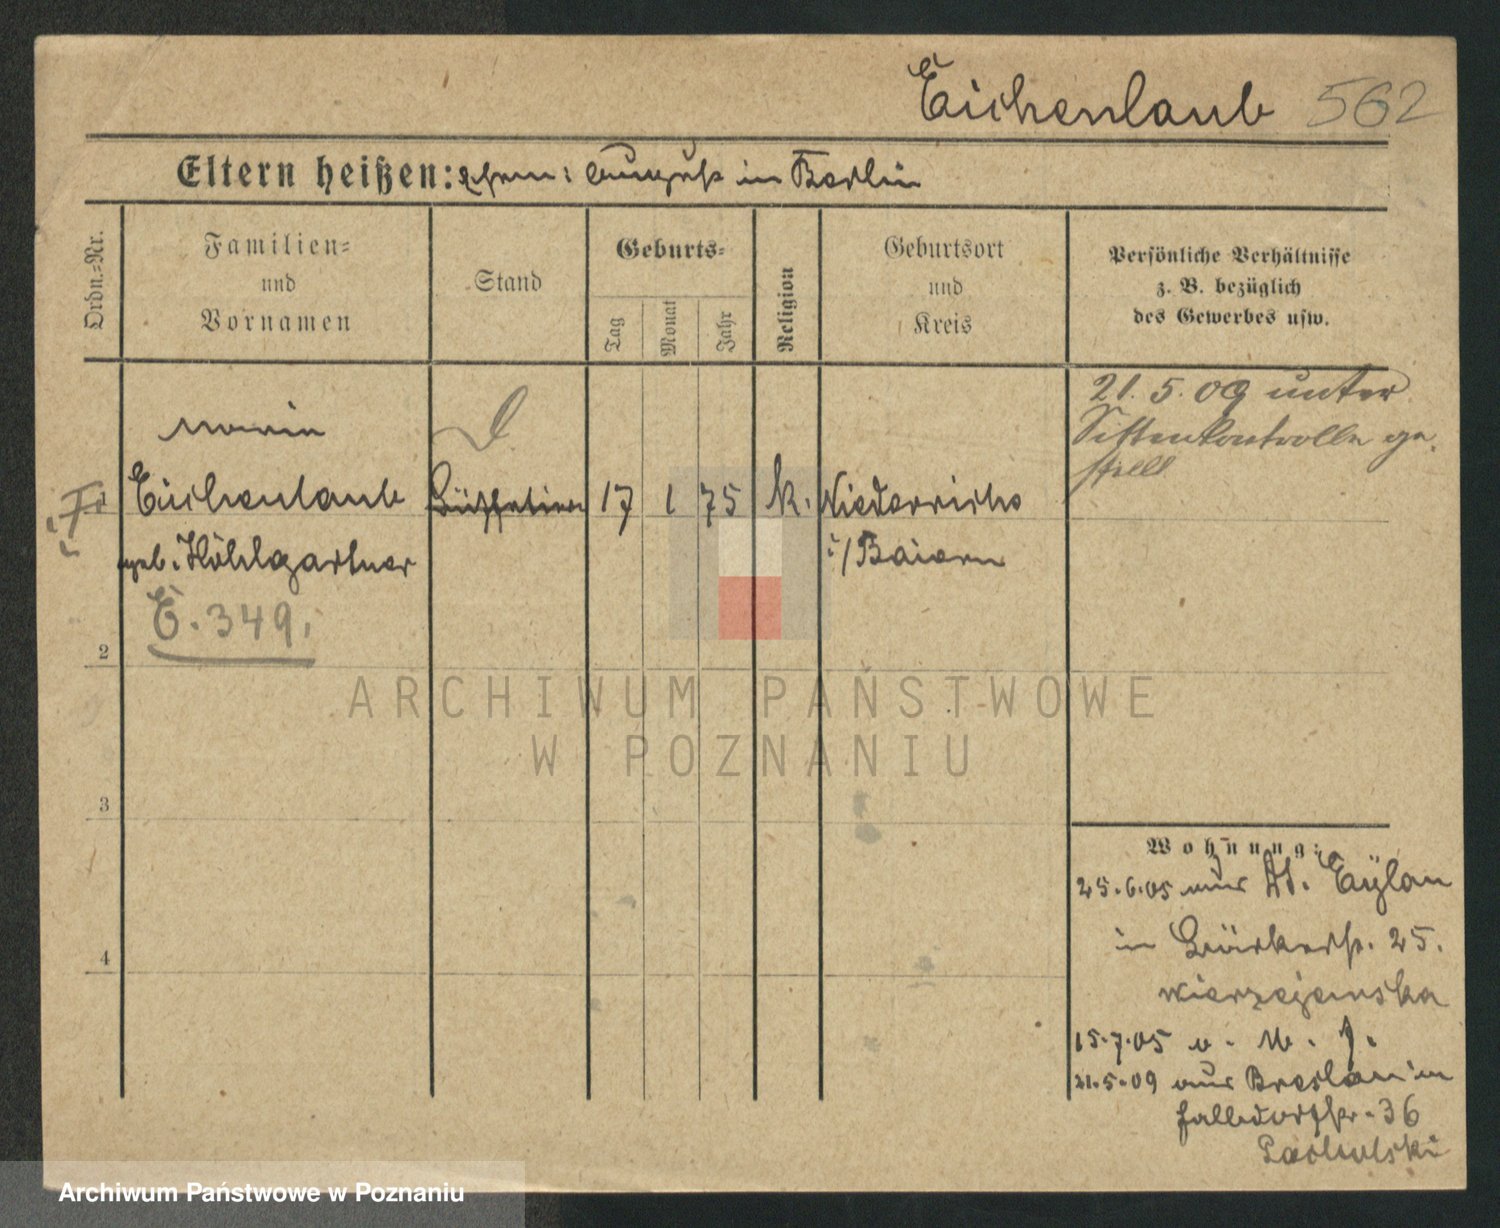 Eichenlaub 562
Eltern heißen: Ehem: August in Berlin
Ordn.=Nr.
Familien=
und
Vornamen
Stand
Geburts=
Tag
Monat
Jahr
Religion
Geburtsort
und
Kreis
Persönliche Verhältnisse
z. B. bezüglich
des Gewerbes usw.
21. 5. 09 unter
Sittenkontrolle ge-
stellt
Maria
Eichenlaub
geb. Höhlgartner
E. 349.
17 1 75 k.
Niederricho
i/Baiern
2
3
4
ARCHIWUM PAŃSTWOWE
W POZNANIU
Wohnung:
25.6.05 aus Dt. Eylau
in 25.
15.7.05
21.5.09 aus Breslau in
36
Archiwum Państwowe w Poznaniu